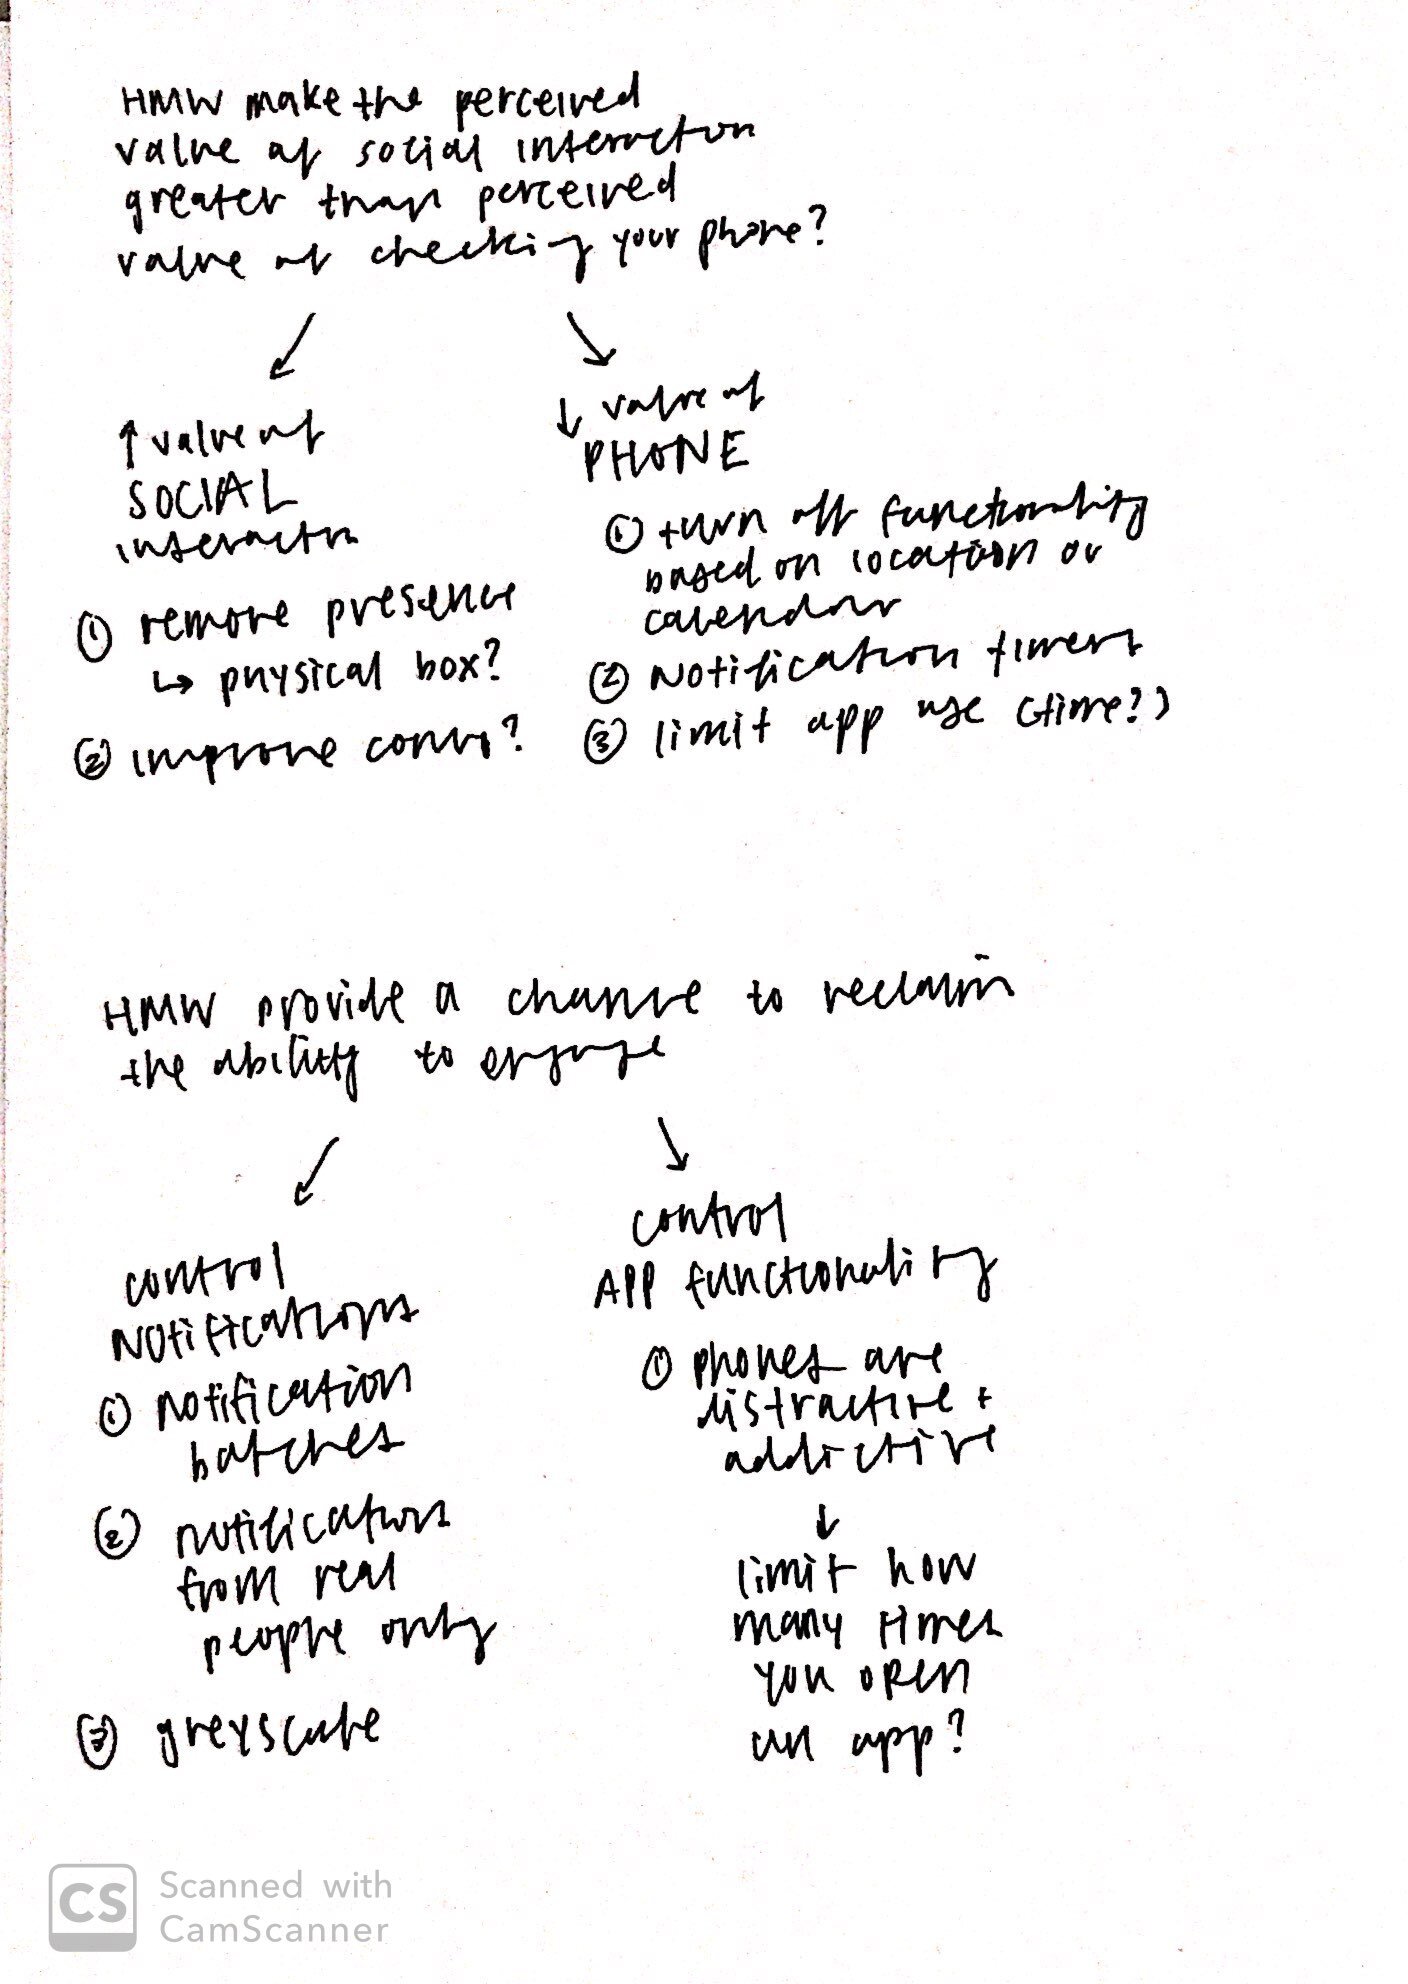 HMW make the perceived
value of social interaction
greater than perceived
value of checking your phone?
↙ ↘
↑ value of
SOCIAL
interactn
① remove presence
↳ physical box?
② improve convo?
↓ value of
PHONE
① turn off functionality
based on location or
calendar
② Notification timers
③ limit app use (time?)
HMW provide a chance to reclaim
the ability to engage
↙ ↘
control
NOtifications
① notification
batches
② notifications
from real
people only
③ greyscale
control
APP functionality
① phones are
distractive +
addictive
↓
limit how
many times
you open
an app?
CS Scanned with
CamScanner